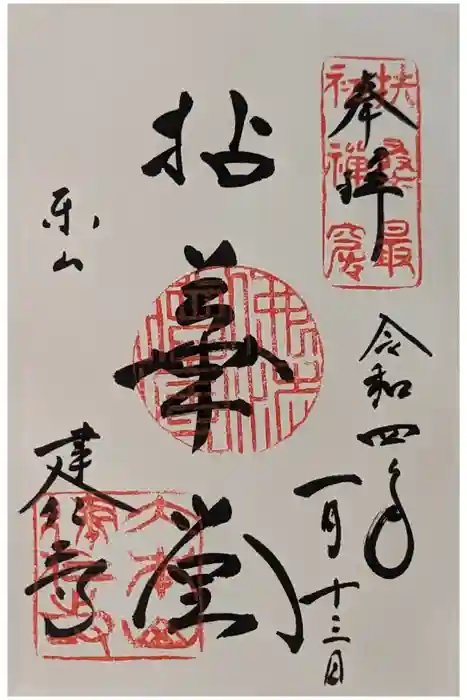 奉拝
扶桑最
初禪窟
令和四年
一月十三日
拈華堂
東山
建仁寺
大本山